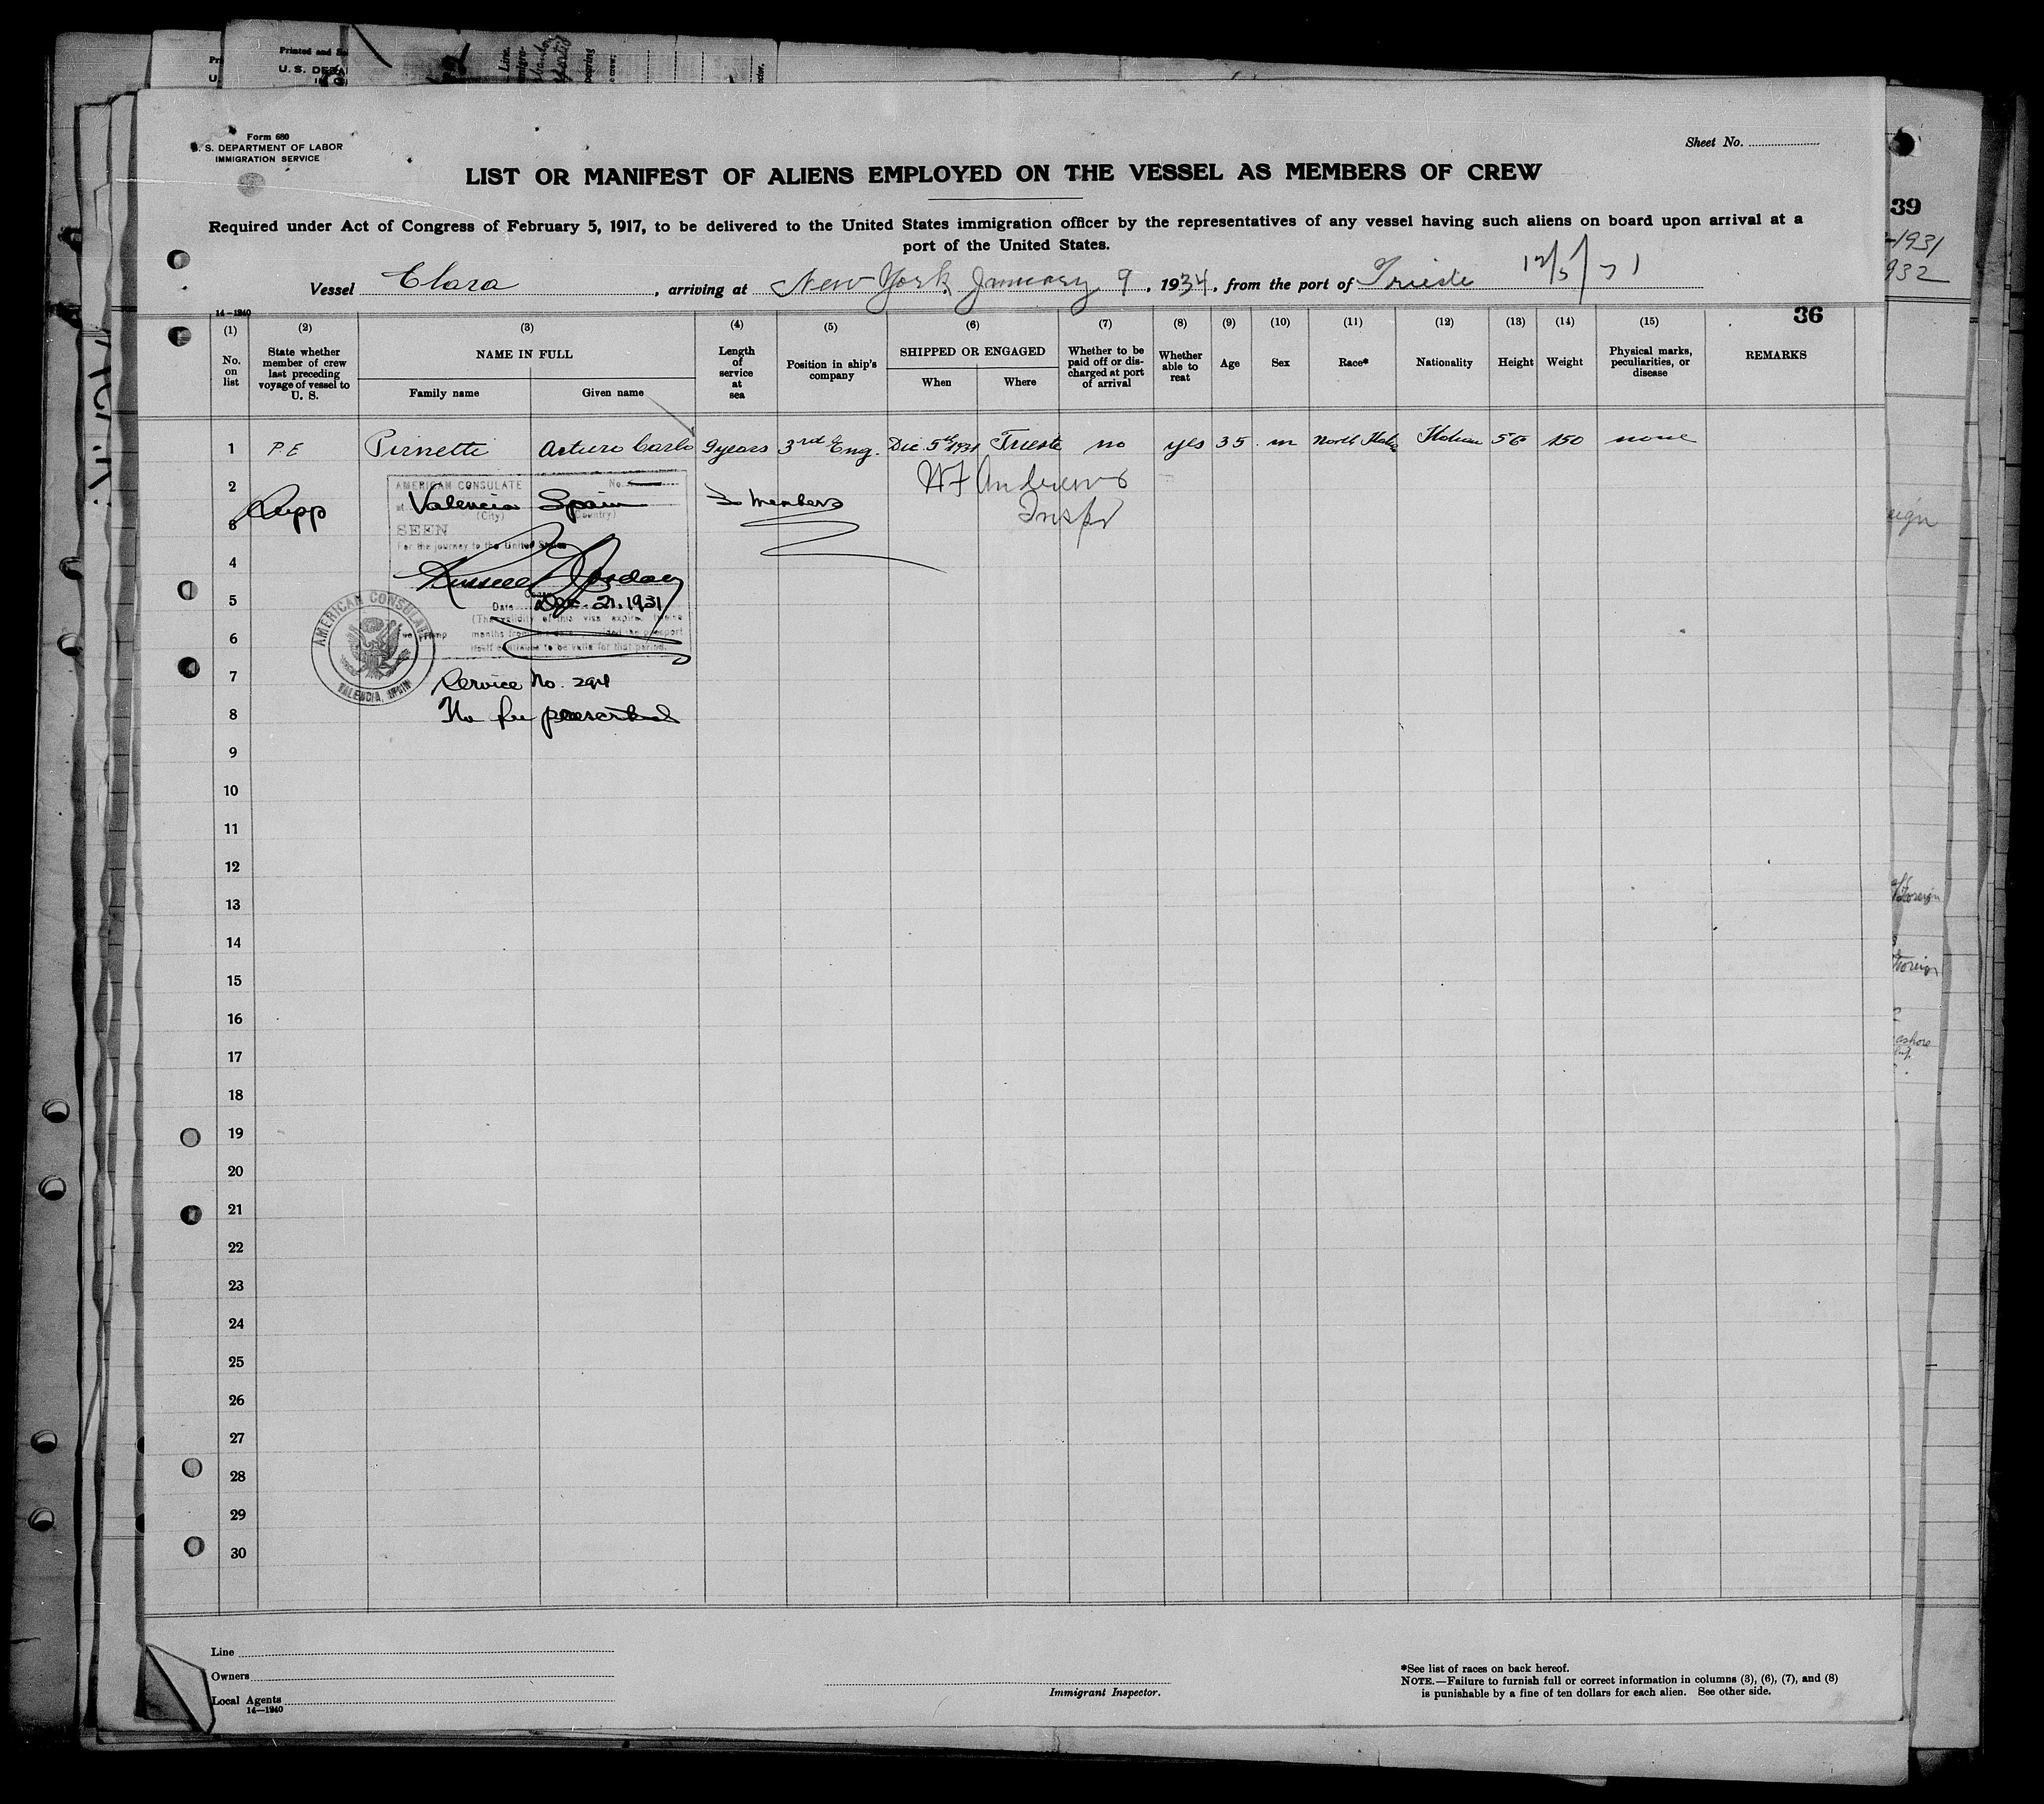 Printed and
U. S. DEPA
39
1931
932
Form 680
S. DEPARTMENT OF LABOR
IMMIGRATION SERVICE
Sheet No.
LIST OR MANIFEST OF ALIENS EMPLOYED ON THE VESSEL AS MEMBERS OF CREW
Required under Act of Congress of February 5, 1917, to be delivered to the United States immigration officer by the representatives of any vessel having such aliens on board upon arrival at a
port of the United States.
Vessel Clara, arriving at New York January 9, 1934, from the port of Trieste 12/5/31
14-1240
36
(1) (2) (3) (4) (5) (6) (7) (8) (9) (10) (11) (12) (13) (14) (15)
No. on list
State whether member of crew last preceding voyage of vessel to U. S.
NAME IN FULL
Family name
Given name
Length of service at sea
Position in ship's company
SHIPPED OR ENGAGED
When
Where
Whether to be paid off or discharged at port of arrival
Whether able to reat
Age
Sex
Race*
Nationality
Height
Weight
Physical marks, peculiarities, or disease
REMARKS
1 PE Pirnetti Arturo Carlo 9 years 3rd Eng. Dic. 5th 1931 Trieste no yes 35 m North Itali Italian 56 150 none
2
3
4
5
6
7
8
9
10
11
12
13
14
15
16
17
18
19
20
21
22
23
24
25
26
27
28
29
30
AMERICAN CONSULATE No.
at Valencia Spain
(City) (Country)
SEEN
For the journey to the United States
Date Dec. 21. 1931
(The validity of this visa expires twelve
months from this date provided the passport
itself continues to be valid for that period.
AMERICAN CONSULATE
VALENCIA, SPAIN
Service No. 2941
No fee prescribed
3 members
W F Andrews
Inspr
Line
Owners
Local Agents
14-1240
Immigrant Inspector.
*See list of races on back hereof.
NOTE.—Failure to furnish full or correct information in columns (3), (6), (7), and (8)
is punishable by a fine of ten dollars for each alien. See other side.